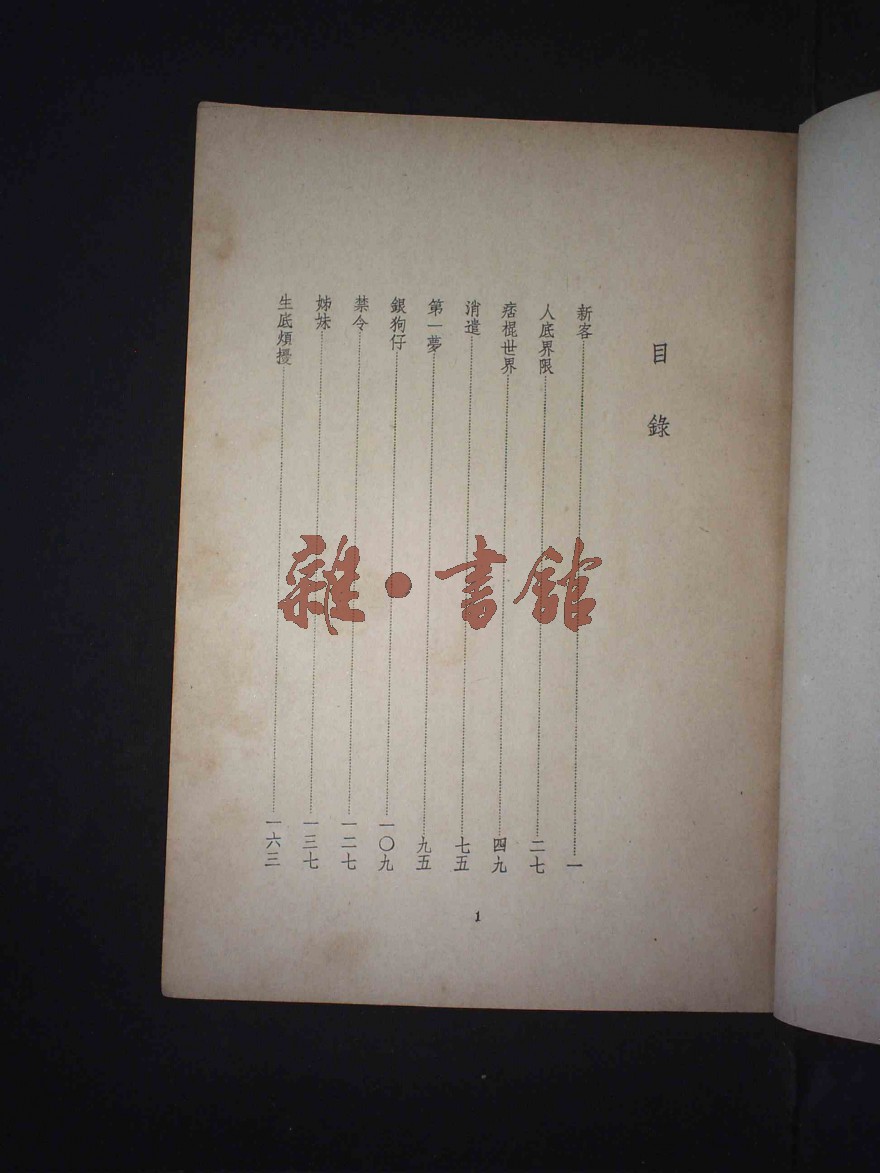 目錄
新客……一
人底界限……二七
痞棍世界……四九
消遣……七五
第一夢……九五
銀狗仔……一〇九
禁令……一二七
姊妹……一三七
生底煩擾……一六三
1
雜·書館